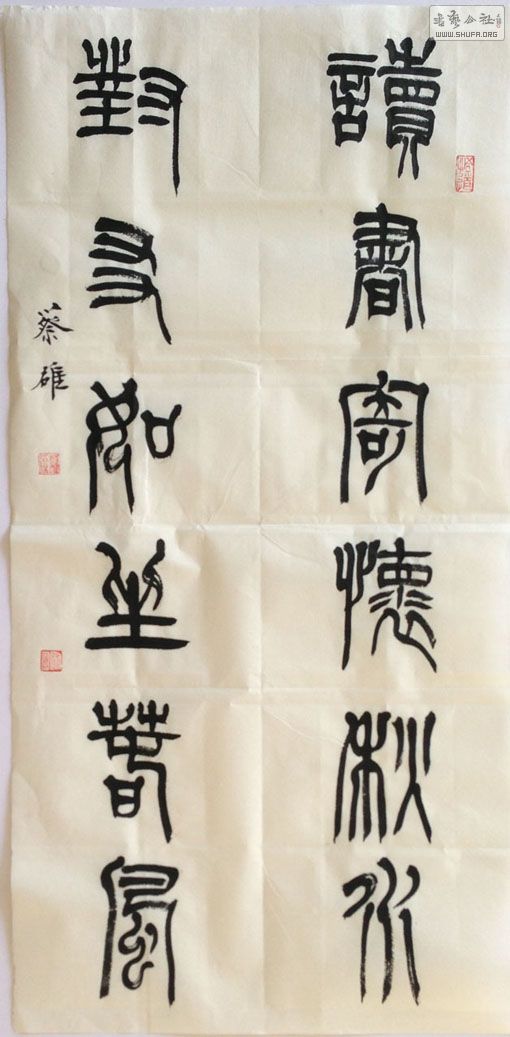 讀書寄懷秋水
對友如坐春風
蔡雄
書藝公社
WWW.SHUFA.ORG